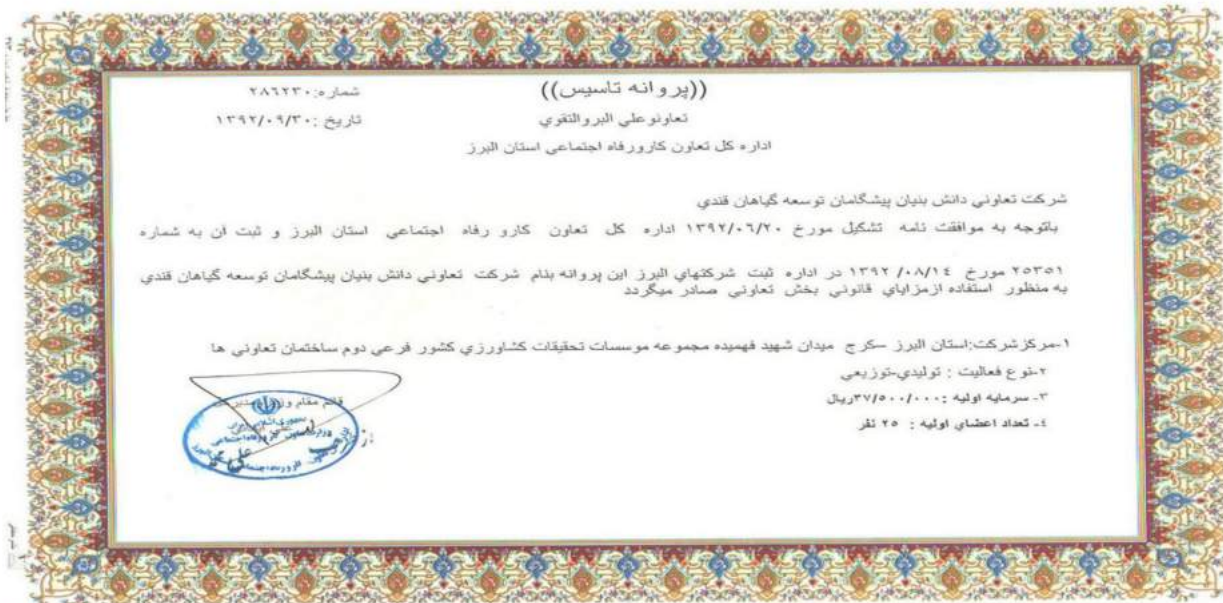 ((پروانه تاسیس))
شماره:۲۸۶۲۳۰
تعاونوعلي البروالتقوي
تاریخ :۱۳۹۲/۰۹/۳۰
اداره کل تعاون کارورفاه اجتماعی استان البرز
شرکت تعاوني دانش بنیان پیشگامان توسعه گیاهان قندي
باتوجه به موافقت نامه تشکیل مورخ ۱۳۹۲/۰۶/۲۰ اداره کل تعاون کارو رفاه اجتماعي استان البرز و ثبت آن به شماره
۲۵۳۵۱ مورخ ۱۳۹۲/۰۸/۱٤ در اداره ثبت شرکتهاي البرز این پروانه بنام شرکت تعاوني دانش بنیان پیشگامان توسعه گیاهان قندي
به منظور استفاده ازمزاياي قانوني بخش تعاوني صادر میگردد
۱-مرکزشرکت:استان البرز –کرج میدان شهید فهمیده مجموعه موسسات تحقیقات کشاورزي کشور فرعي دوم ساختمان تعاوني ها
۲-نوع فعالیت : تولیدي-توزیعي
۳- سرمایه اولیه :۳۷/۵۰۰/۰۰۰ریال
٤- تعداد اعضاي اولیه : ۲۵ نفر
قائم مقام وزیر